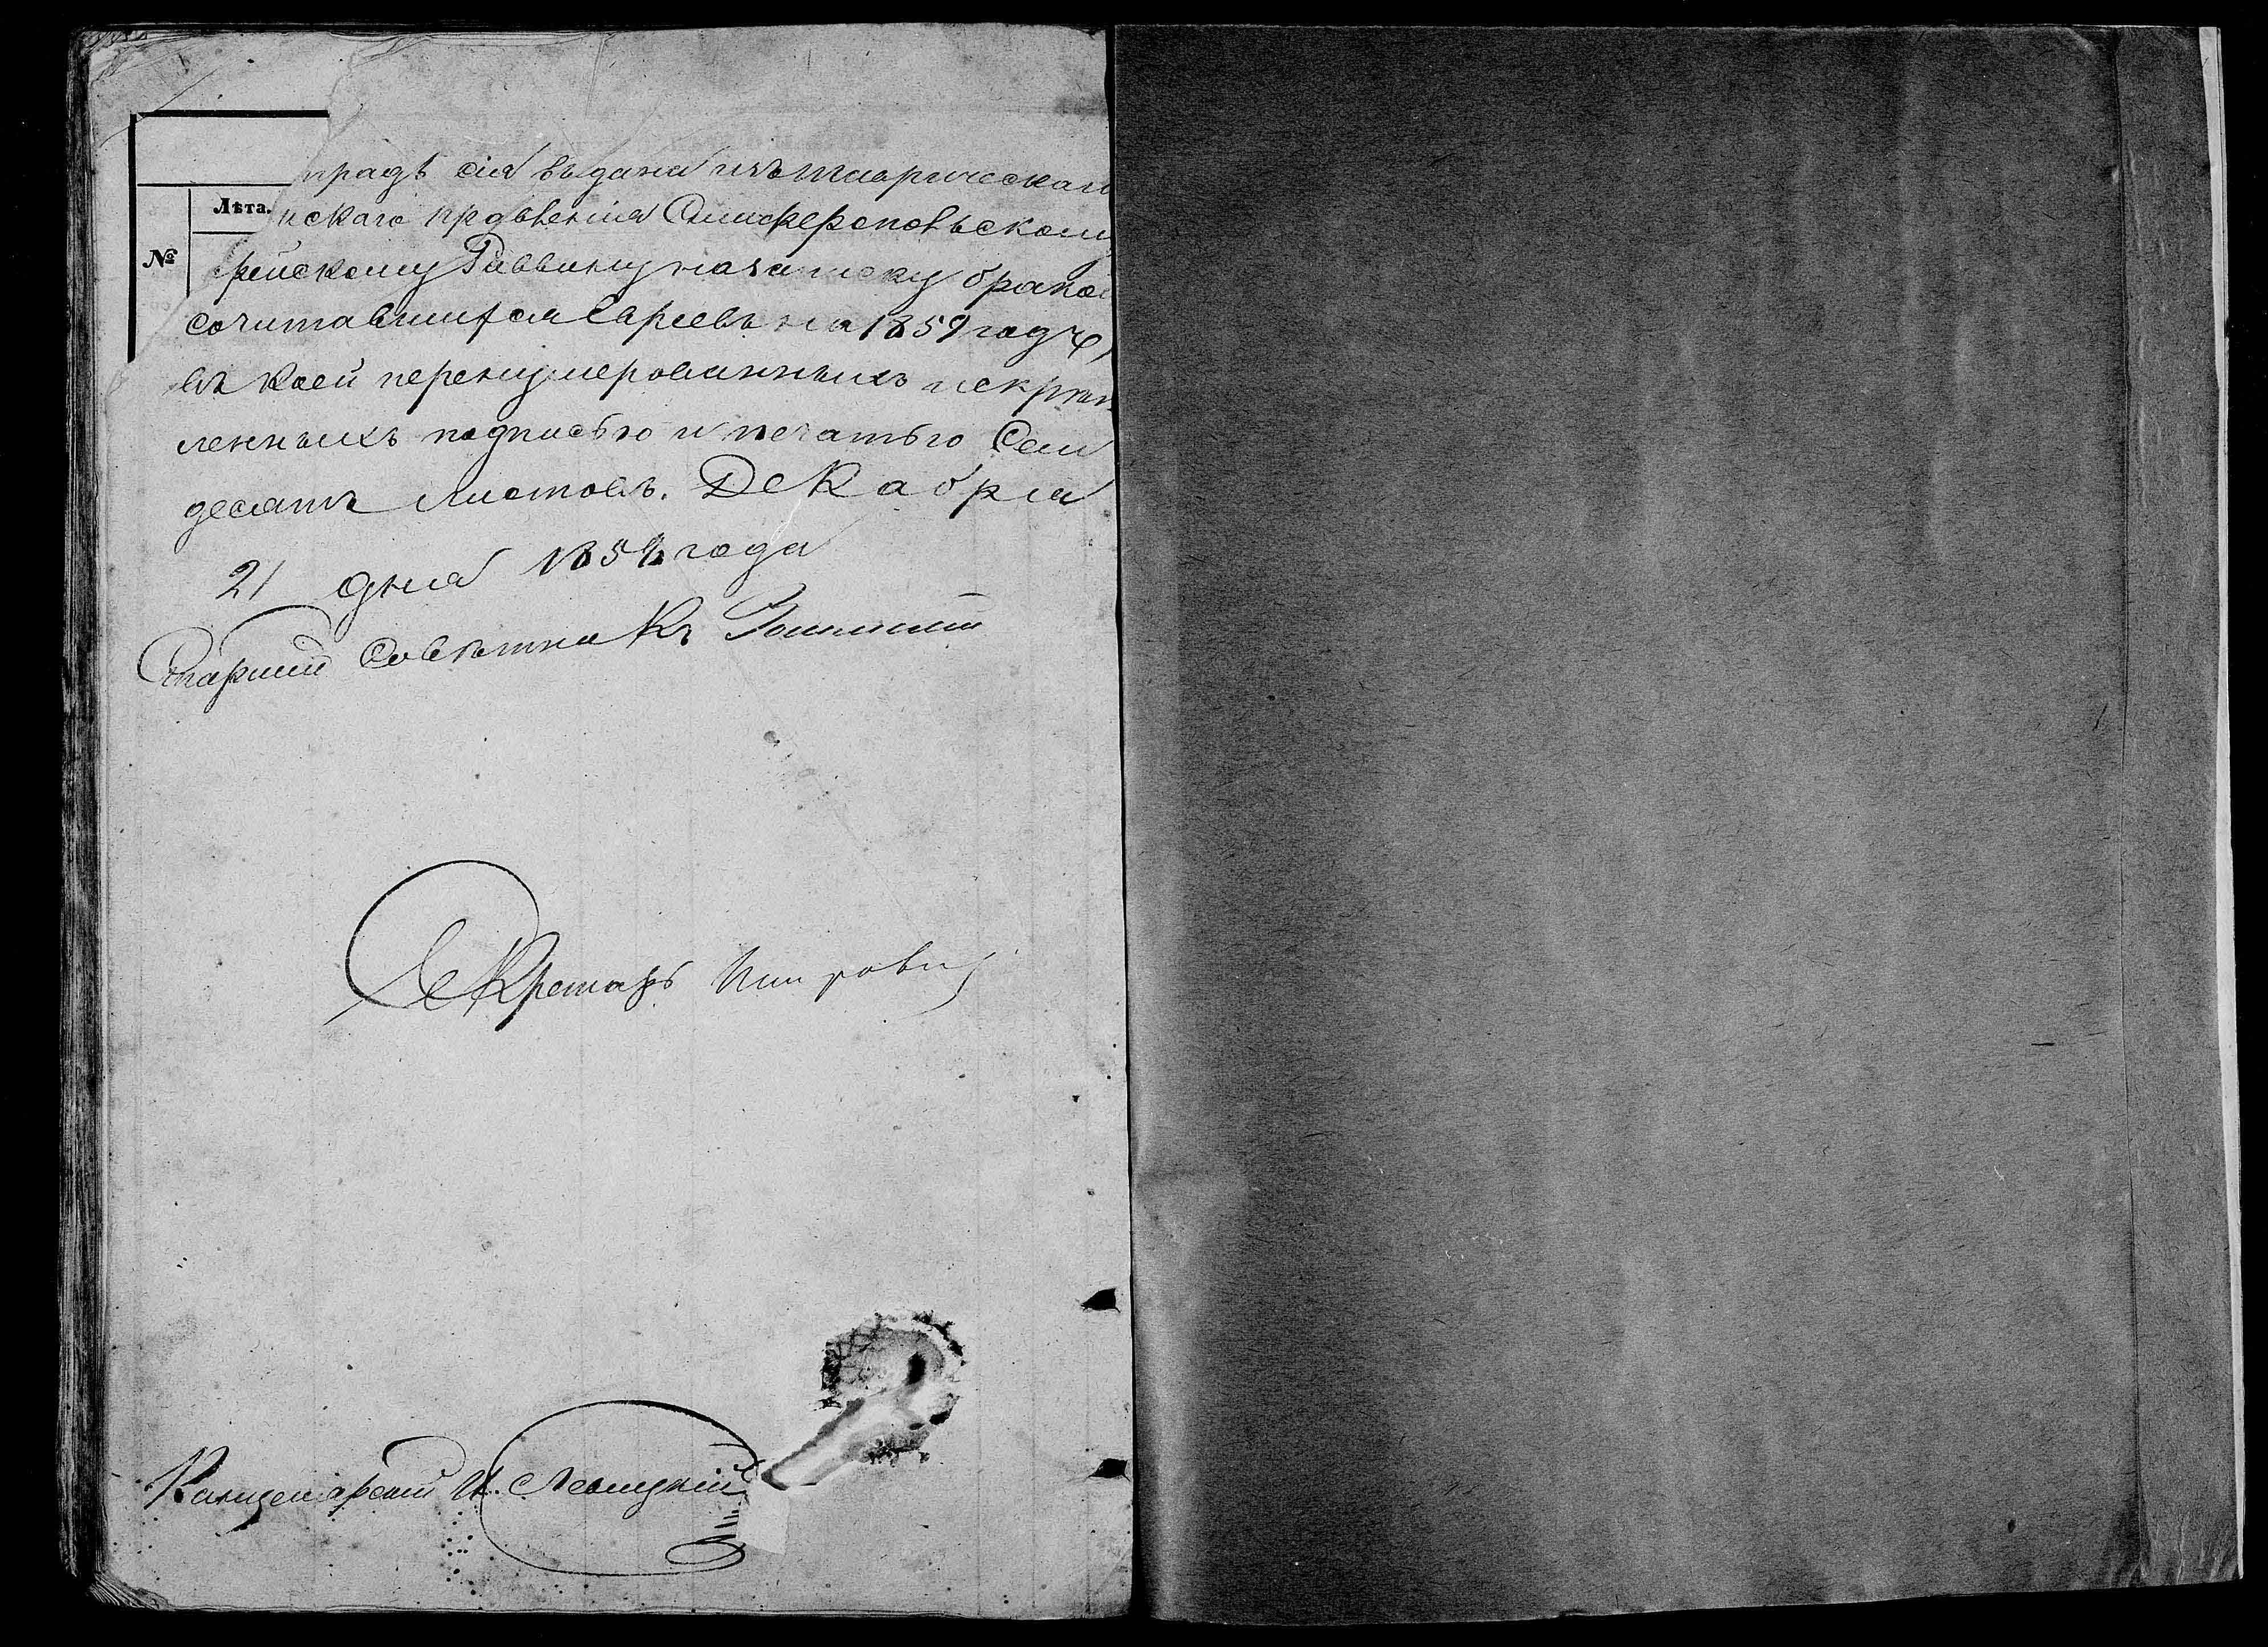 традь сія выдана изъ Таврическаго
Лѣта.
нскаго правленія Симферопольскому
№
рейскому Раввину на записку брако
сочитавшихся Евреевъ на 1859 годъ,
въ коей перенумерованныхъ и скрѣп
ленныхъ подписью и печатью Сем
десятъ листовъ. Декабря
21 дня 1858 года
Старшій Совѣтникъ
Секретарь
Канцелярскій И. Левицкій